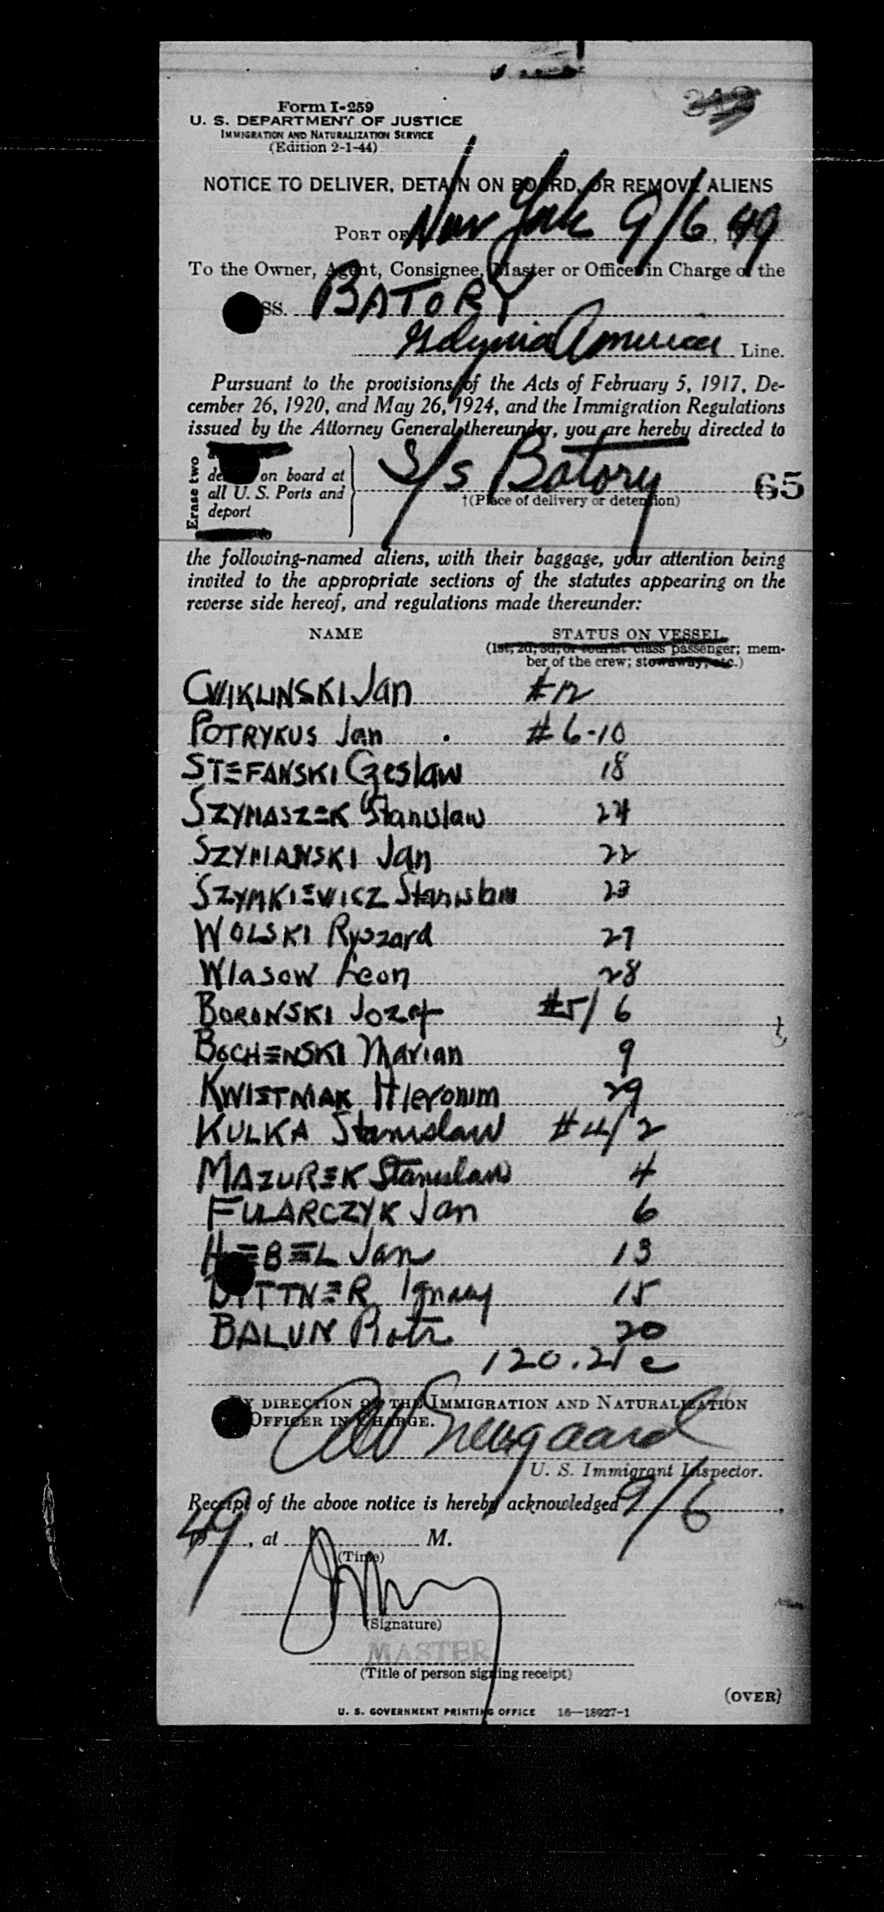 Form I-259
U. S. DEPARTMENT OF JUSTICE
IMMIGRATION AND NATURALIZATION SERVICE
(Edition 2-1-44)
NOTICE TO DELIVER, DETAIN ON BOARD, OR REMOVE ALIENS
PORT OF New York 9/6, 49
To the Owner, Agent, Consignee, Master or Officer in Charge of the
SS. BATORY
Gdynia America Line.
Pursuant to the provisions of the Acts of February 5, 1917, De-
cember 26, 1920, and May 26, 1924, and the Immigration Regulations
issued by the Attorney General thereunder, you are hereby directed to
Erase two
on board at
all U. S. Ports and
deport
S/s Batory
65
†(Place of delivery or detention)
the following-named aliens, with their baggage, your attention being
invited to the appropriate sections of the statutes appearing on the
reverse side hereof, and regulations made thereunder:
NAME STATUS ON VESSEL
(1st, 2d, 3d, or tourist class passenger; mem-
ber of the crew; stowaway, etc.)
CWIKLINSKI Jan #12
POTRYKUS Jan #6-10
STEFANSKI Czeslaw 18
SZYMASZEK Stanislaw 24
SZYMANSKI Jan 22
SZYMKIEWICZ Stanislaw 23
WOLSKI Ryszard 27
Wlasow Leon 28
BORONSKI Jozef #5/6
BOCHENSKI Marian 9
KWIETNIAK Hieronim 29
KULKA Stanislaw #4/2
MAZUREK Stanislaw 4
FULARCZYK Jan 6
HEBEL Jan 13
DITTNER Ignacy 15
BALUN Piotr 20
120.21 c
BY DIRECTION OF THE IMMIGRATION AND NATURALIZATION
OFFICER IN CHARGE.
U. S. Immigrant Inspector.
Receipt of the above notice is hereby acknowledged 9/6,
49, at M.
(Time)
(Signature)
MASTER
(Title of person signing receipt)
(OVER)
U. S. GOVERNMENT PRINTING OFFICE 16—18927-1